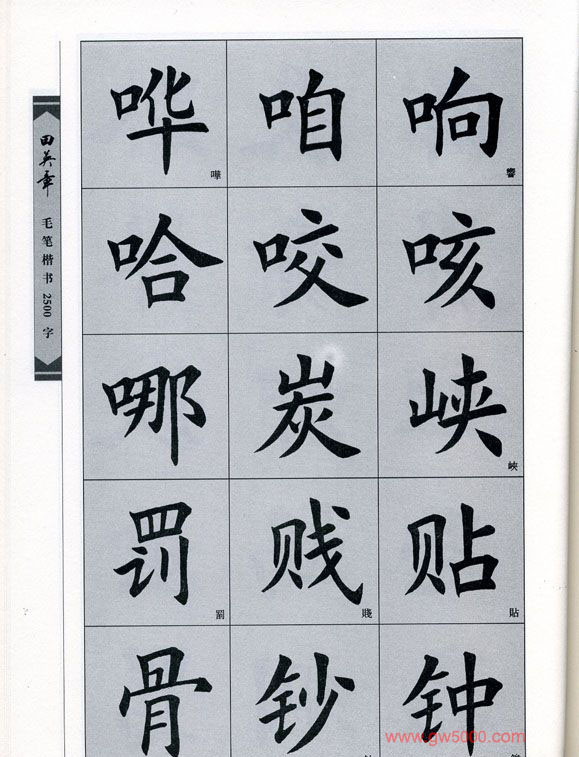 田英章
毛笔楷书2500字
哗 咱 响
嘩 響
哈 咬 咳
哪 炭 峡
峽
罚 贱 贴
罰 賤 貼
骨 钞 钟
www.gw5000.com